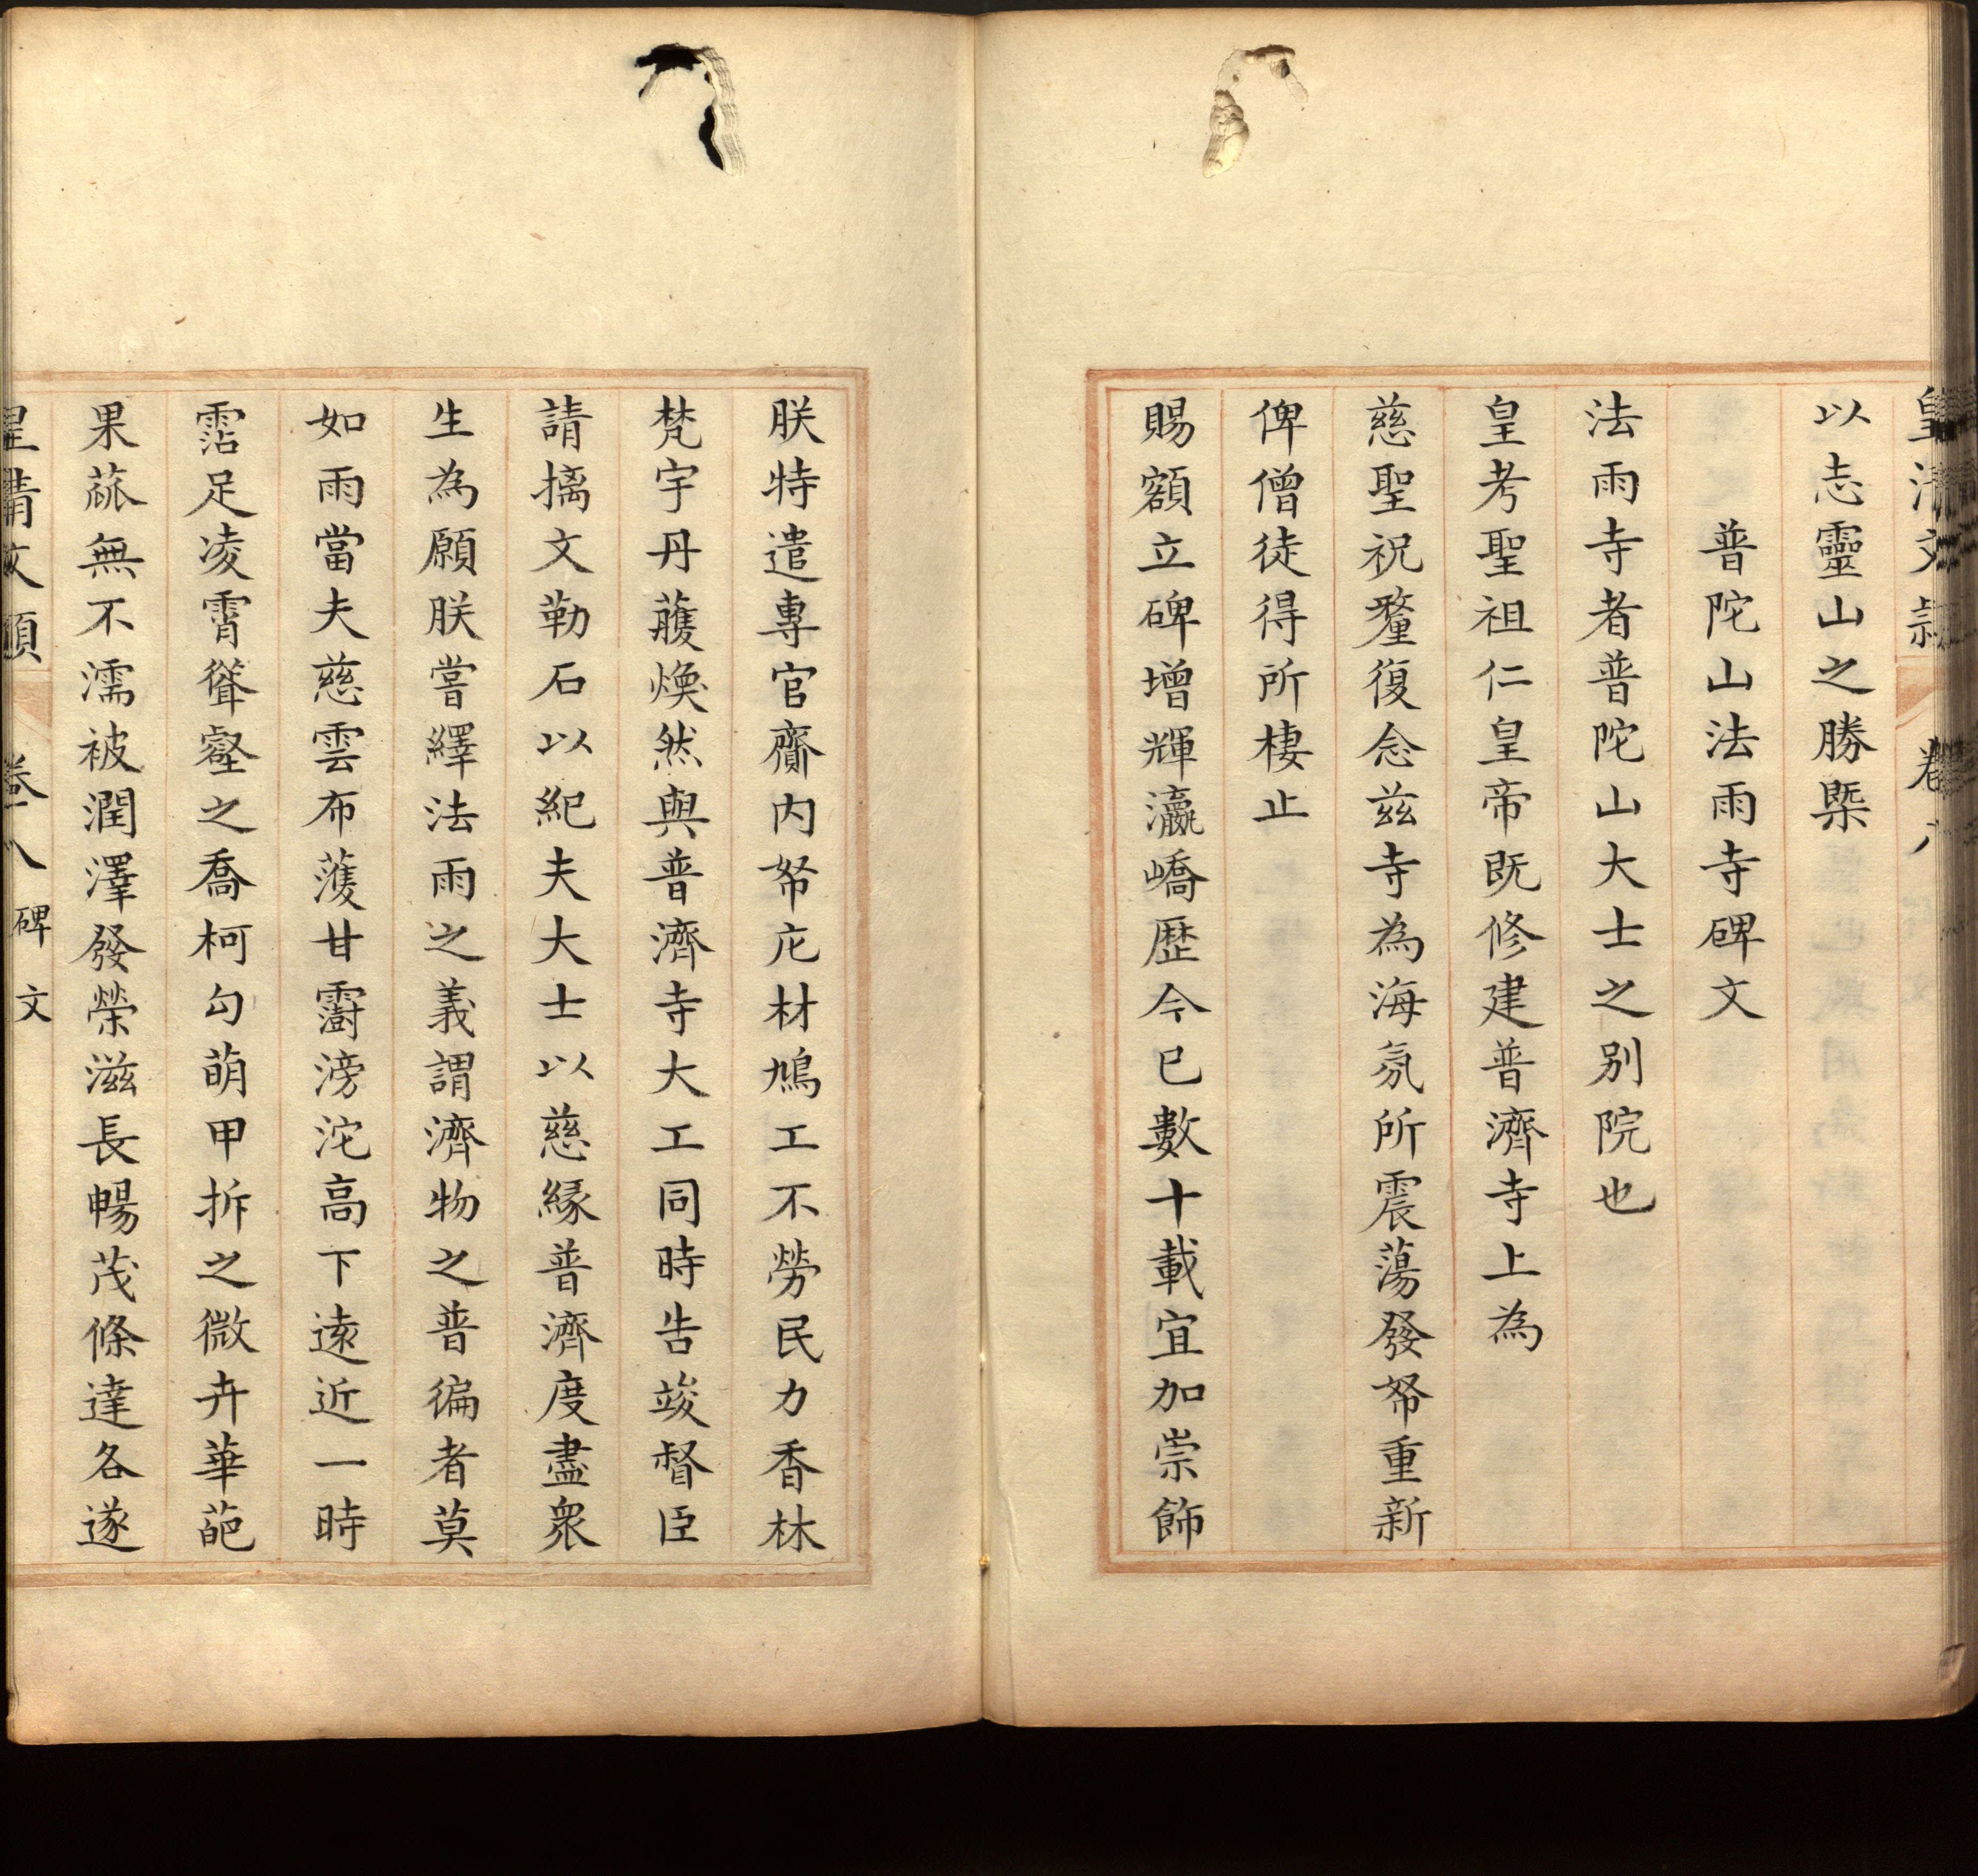 以志靈山之勝槩
普陀山法雨寺碑文
法雨寺者普陀山大士之别院也
皇考聖祖仁皇帝既修建普濟寺上為
慈聖祝釐復念兹寺為海氛所震蕩發帑重新
俾僧徒得所棲止
賜額立碑增輝瀛嶠歴今已數十載宜加崇飾
朕特遣專官齎内帑庀材鳩工不勞民力香林
梵宇丹雘煥然與普濟寺大工同時告竣督臣
請摛文勒石以紀夫大士以慈縁普濟度盡衆
生為願朕嘗繹法雨之義謂濟物之普徧者莫
如雨當夫慈雲布濩甘霔滂沱高下逺近一時
霑足凌霄聳壑之喬柯勾萌甲拆之微卉華葩
果蓏無不濡被潤澤發榮滋長暢茂條達各遂
皇清文頴 卷十八 碑文